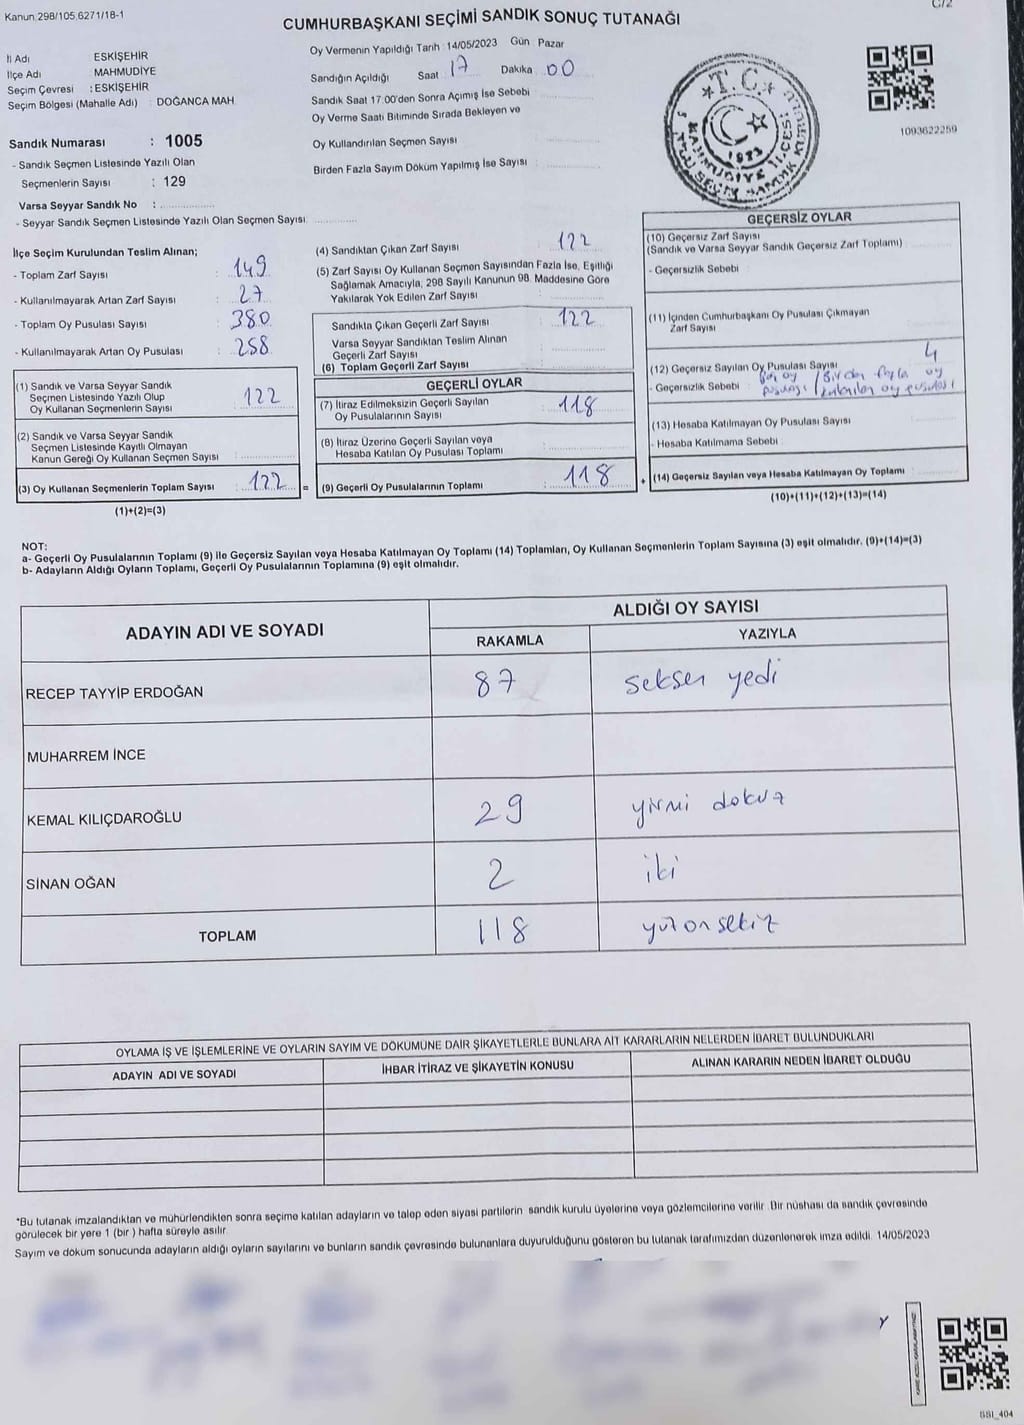 Kanun:298/105,6271/18-1
C/2
CUMHURBAŞKANI SEÇİMİ SANDIK SONUÇ TUTANAĞI
İl Adı ESKİŞEHİR
İlçe Adı MAHMUDİYE
Seçim Çevresi : ESKİŞEHİR
Seçim Bölgesi (Mahalle Adı) : DOĞANCA MAH.
Sandık Numarası : 1005
- Sandık Seçmen Listesinde Yazılı Olan
Seçmenlerin Sayısı : 129
Varsa Seyyar Sandık No :
- Seyyar Sandık Seçmen Listesinde Yazılı Olan Seçmen Sayısı:
Oy Vermenin Yapıldığı Tarih :14/05/2023 Gün Pazar
Sandığın Açıldığı Saat 17 Dakika 00
Sandık Saat 17:00'den Sonra Açımış İse Sebebi
Oy Verme Saati Bitiminde Sırada Bekleyen ve
Oy Kullandırılan Seçmen Sayısı
Birden Fazla Sayım Döküm Yapılmış İse Sayısı
T.C.
MAHMUDİYE İLÇESİ
1923
1093622259
İlçe Seçim Kurulundan Teslim Alınan;
- Toplam Zarf Sayısı : 149
- Kullanılmayarak Artan Zarf Sayısı : 27
- Toplam Oy Pusulası Sayısı : 380
- Kullanılmayarak Artan Oy Pusulası : 258
(1) Sandık ve Varsa Seyyar Sandık
Seçmen Listesinde Yazılı Olup
Oy Kullanan Seçmenlerin Sayısı : 122
(2) Sandık ve Varsa Seyyar Sandık
Seçmen Listesinde Kayıtlı Olmayan
Kanun Gereği Oy Kullanan Seçmen Sayısı :
(3) Oy Kullanan Seçmenlerin Toplam Sayısı : 122 =
(1)+(2)=(3)
(4) Sandıktan Çıkan Zarf Sayısı : 122
(5) Zarf Sayısı Oy Kullanan Seçmen Sayısından Fazla İse, Eşitliği
Sağlamak Amacıyla, 298 Sayılı Kanunun 98. Maddesine Göre
Yakılarak Yok Edilen Zarf Sayısı :
Sandıkta Çıkan Geçerli Zarf Sayısı : 122
Varsa Seyyar Sandıktan Teslim Alınan
Geçerli Zarf Sayısı :
(6) Toplam Geçerli Zarf Sayısı
GEÇERLİ OYLAR
(7) İtiraz Edilmeksizin Geçerli Sayılan
Oy Pusulalarının Sayısı : 118
(8) İtiraz Üzerine Geçerli Sayılan veya
Hesaba Katılan Oy Pusulası Toplamı :
(9) Geçerli Oy Pusulalarının Toplamı : 118 +
GEÇERSİZ OYLAR
(10) Geçersiz Zarf Sayısı
(Sandık ve Varsa Seyyar Sandık Geçersiz Zarf Toplamı) :
- Geçersizlik Sebebi :
(11) İçinden Cumhurbaşkanı Oy Pusulası Çıkmayan
Zarf Sayısı :
(12) Geçersiz Sayılan Oy Pusulası Sayısı 4
- Geçersizlik Sebebi : Boş oy / Birden fazla oy
pusulası / katınılan oy pusulası
(13) Hesaba Katılmayan Oy Pusulası Sayısı :
- Hesaba Katılmama Sebebi :
(14) Geçersiz Sayılan veya Hesaba Katılmayan Oy Toplamı :
(10)+(11)+(12)+(13)=(14)
NOT:
a- Geçerli Oy Pusulalarının Toplamı (9) ile Geçersiz Sayılan veya Hesaba Katılmayan Oy Toplamı (14) Toplamları, Oy Kullanan Seçmenlerin Toplam Sayısına (3) eşit olmalıdır. (9)+(14)=(3)
b- Adayların Aldığı Oyların Toplamı, Geçerli Oy Pusulalarının Toplamına (9) eşit olmalıdır.
ADAYIN ADI VE SOYADI ALDIĞI OY SAYISI
RAKAMLA YAZIYLA
RECEP TAYYİP ERDOĞAN 87 seksen yedi
MUHARREM İNCE
KEMAL KILIÇDAROĞLU 29 yirmi dokuz
SİNAN OĞAN 2 iki
TOPLAM 118 yüzonsekiz
OYLAMA İŞ VE İŞLEMLERİNE VE OYLARIN SAYIM VE DÖKÜMÜNE DAİR ŞİKAYETLERLE BUNLARA AİT KARARLARIN NELERDEN İBARET BULUNDUKLARI
ADAYIN ADI VE SOYADI İHBAR İTİRAZ VE ŞİKAYETİN KONUSU ALINAN KARARIN NEDEN İBARET OLDUĞU
*Bu tutanak imzalandıktan ve mühürlendikten sonra seçime katılan adayların ve talep eden siyasi partilerin sandık kurulu üyelerine veya gözlemcilerine verilir. Bir nüshası da sandık çevresinde
görülecek bir yere 1 (bir ) hafta süreyle asılır.
Sayım ve döküm sonucunda adayların aldığı oyların sayılarını ve bunların sandık çevresinde bulunanlara duyurulduğunu gösteren bu tutanak tarafımızdan düzenlenerek imza edildi. 14/05/2023
SSI_404